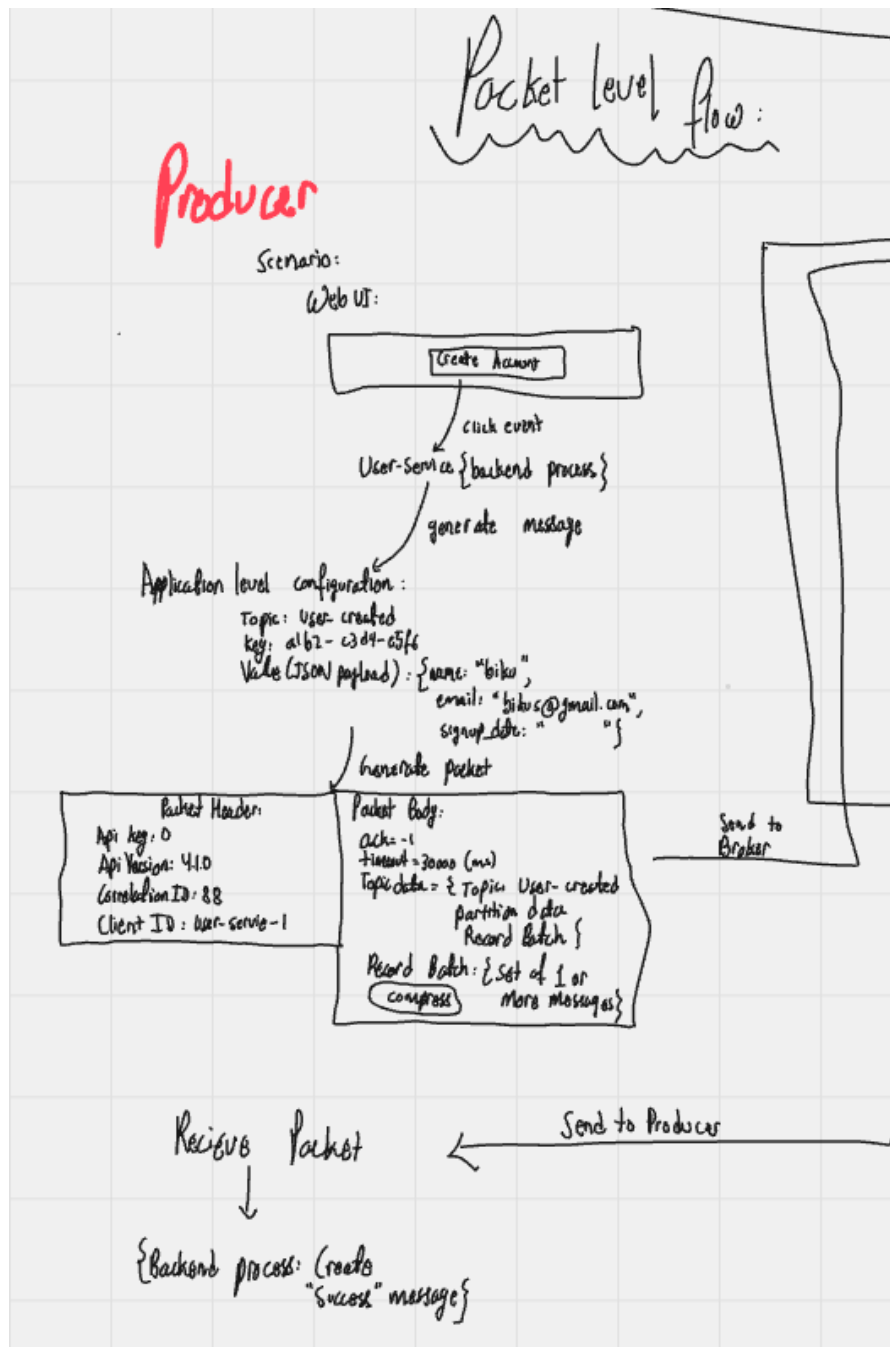 Packet level flow:
Producer
Scenario:
Web UI:
Create Account
click event
User-Service {backend process}
generate message
Application level configuration:
Topic: User-created
Key: a1b2-c3d4-e5f6
Value (JSON payload): {name: "biku",
email: "bikus@gmail.com",
signup_date: " "}
Generate packet
Packet Header:
Api key: 0
Api Version: 4.1.0
Correlation ID: 88
Client ID: user-servie-1
Packet Body:
ack=-1
timeout=30000 (ms)
Topic data = { Topic: User-created
partition data
Record Batch }
Record Batch: {Set of 1 or
compress more messages}
Send to
Broker
Send to Producer
Recieve Packet
{Backend process: Create
"Success" message}